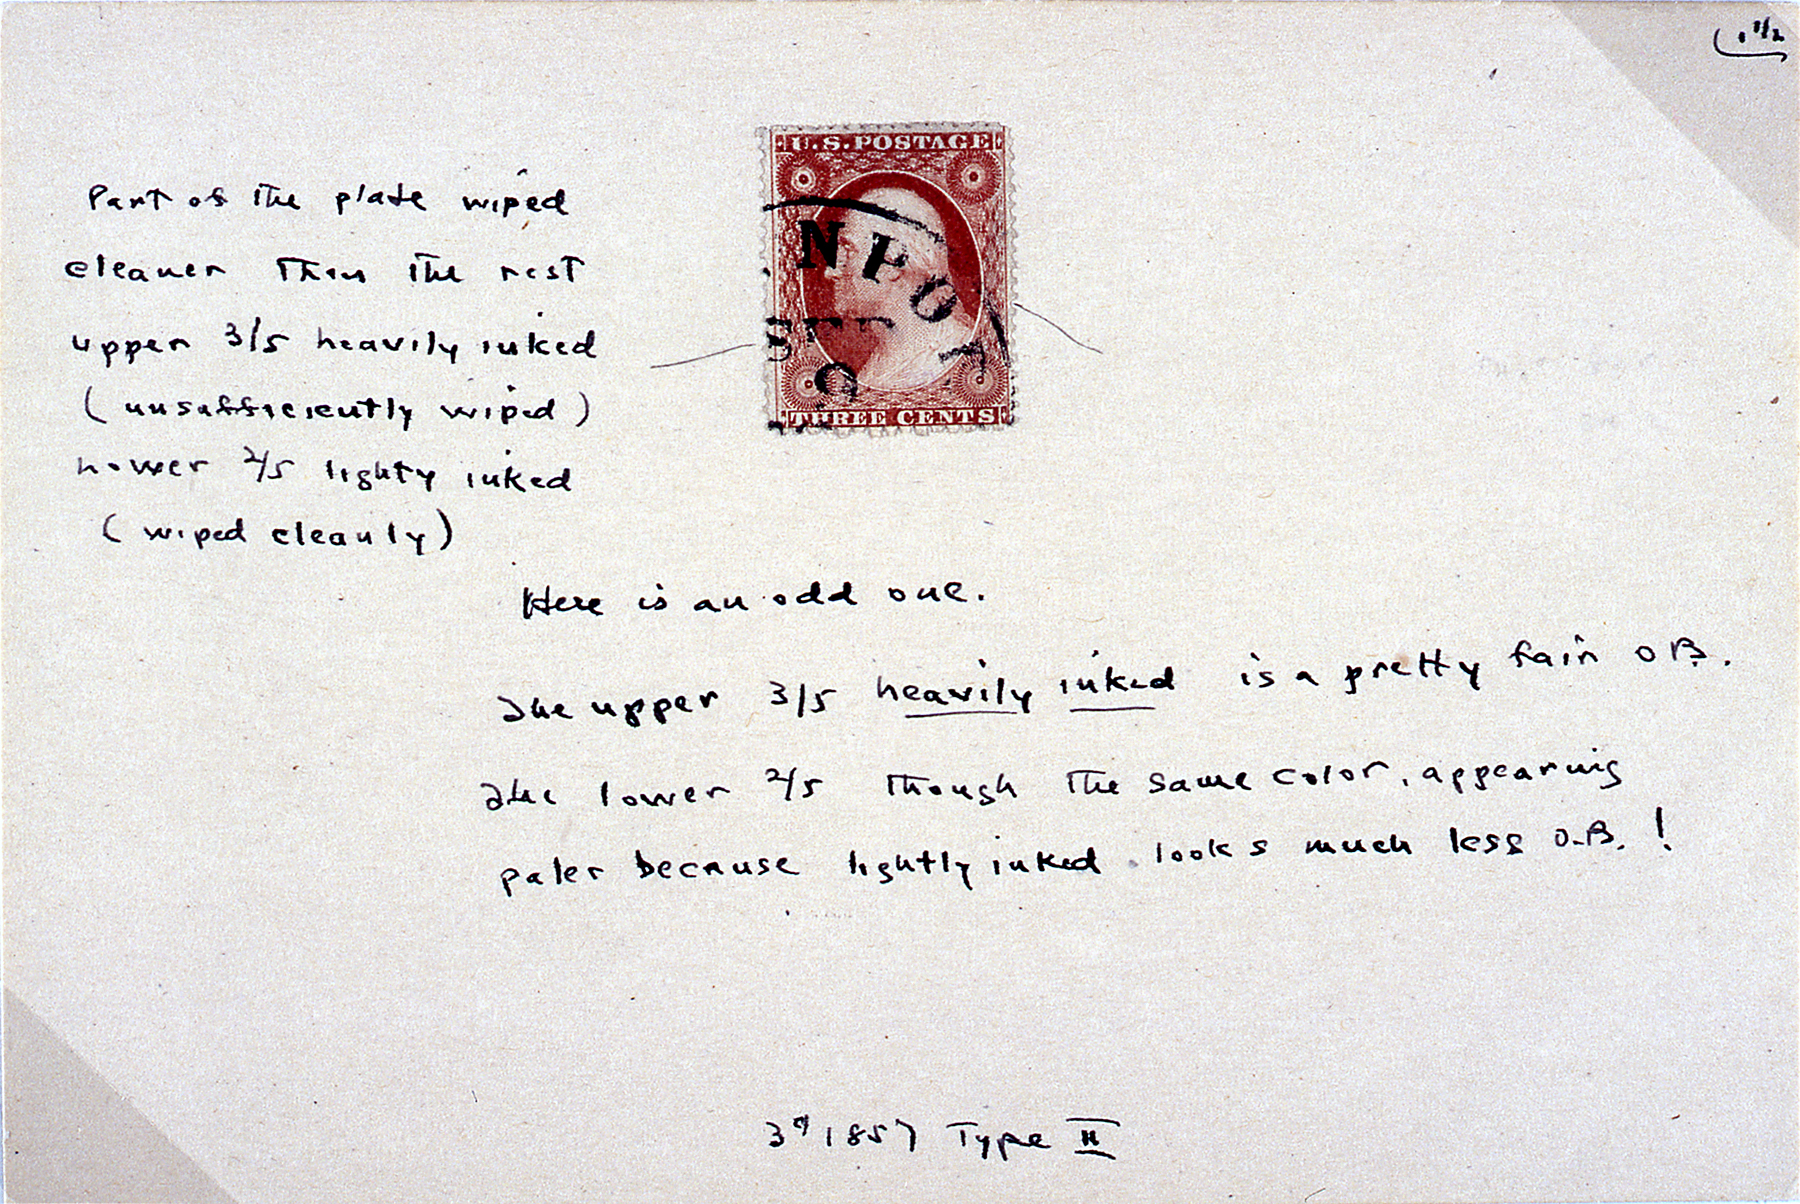 1 1/2
U.S. POSTAGE
NPORT
SEP
THREE CENTS
Part of the plate wiped
cleaner than the rest
upper 3/5 heavily inked
(unsufficiently wiped)
Lower 2/5 lighty inked
(wiped cleanly)
Here is an odd one.
The upper 3/5 heavily inked is a pretty fair OB.
The lower 2/5 though the same color, appearing
paler because lightly inked looks much less O.B. !
3¢ 1857 Type II